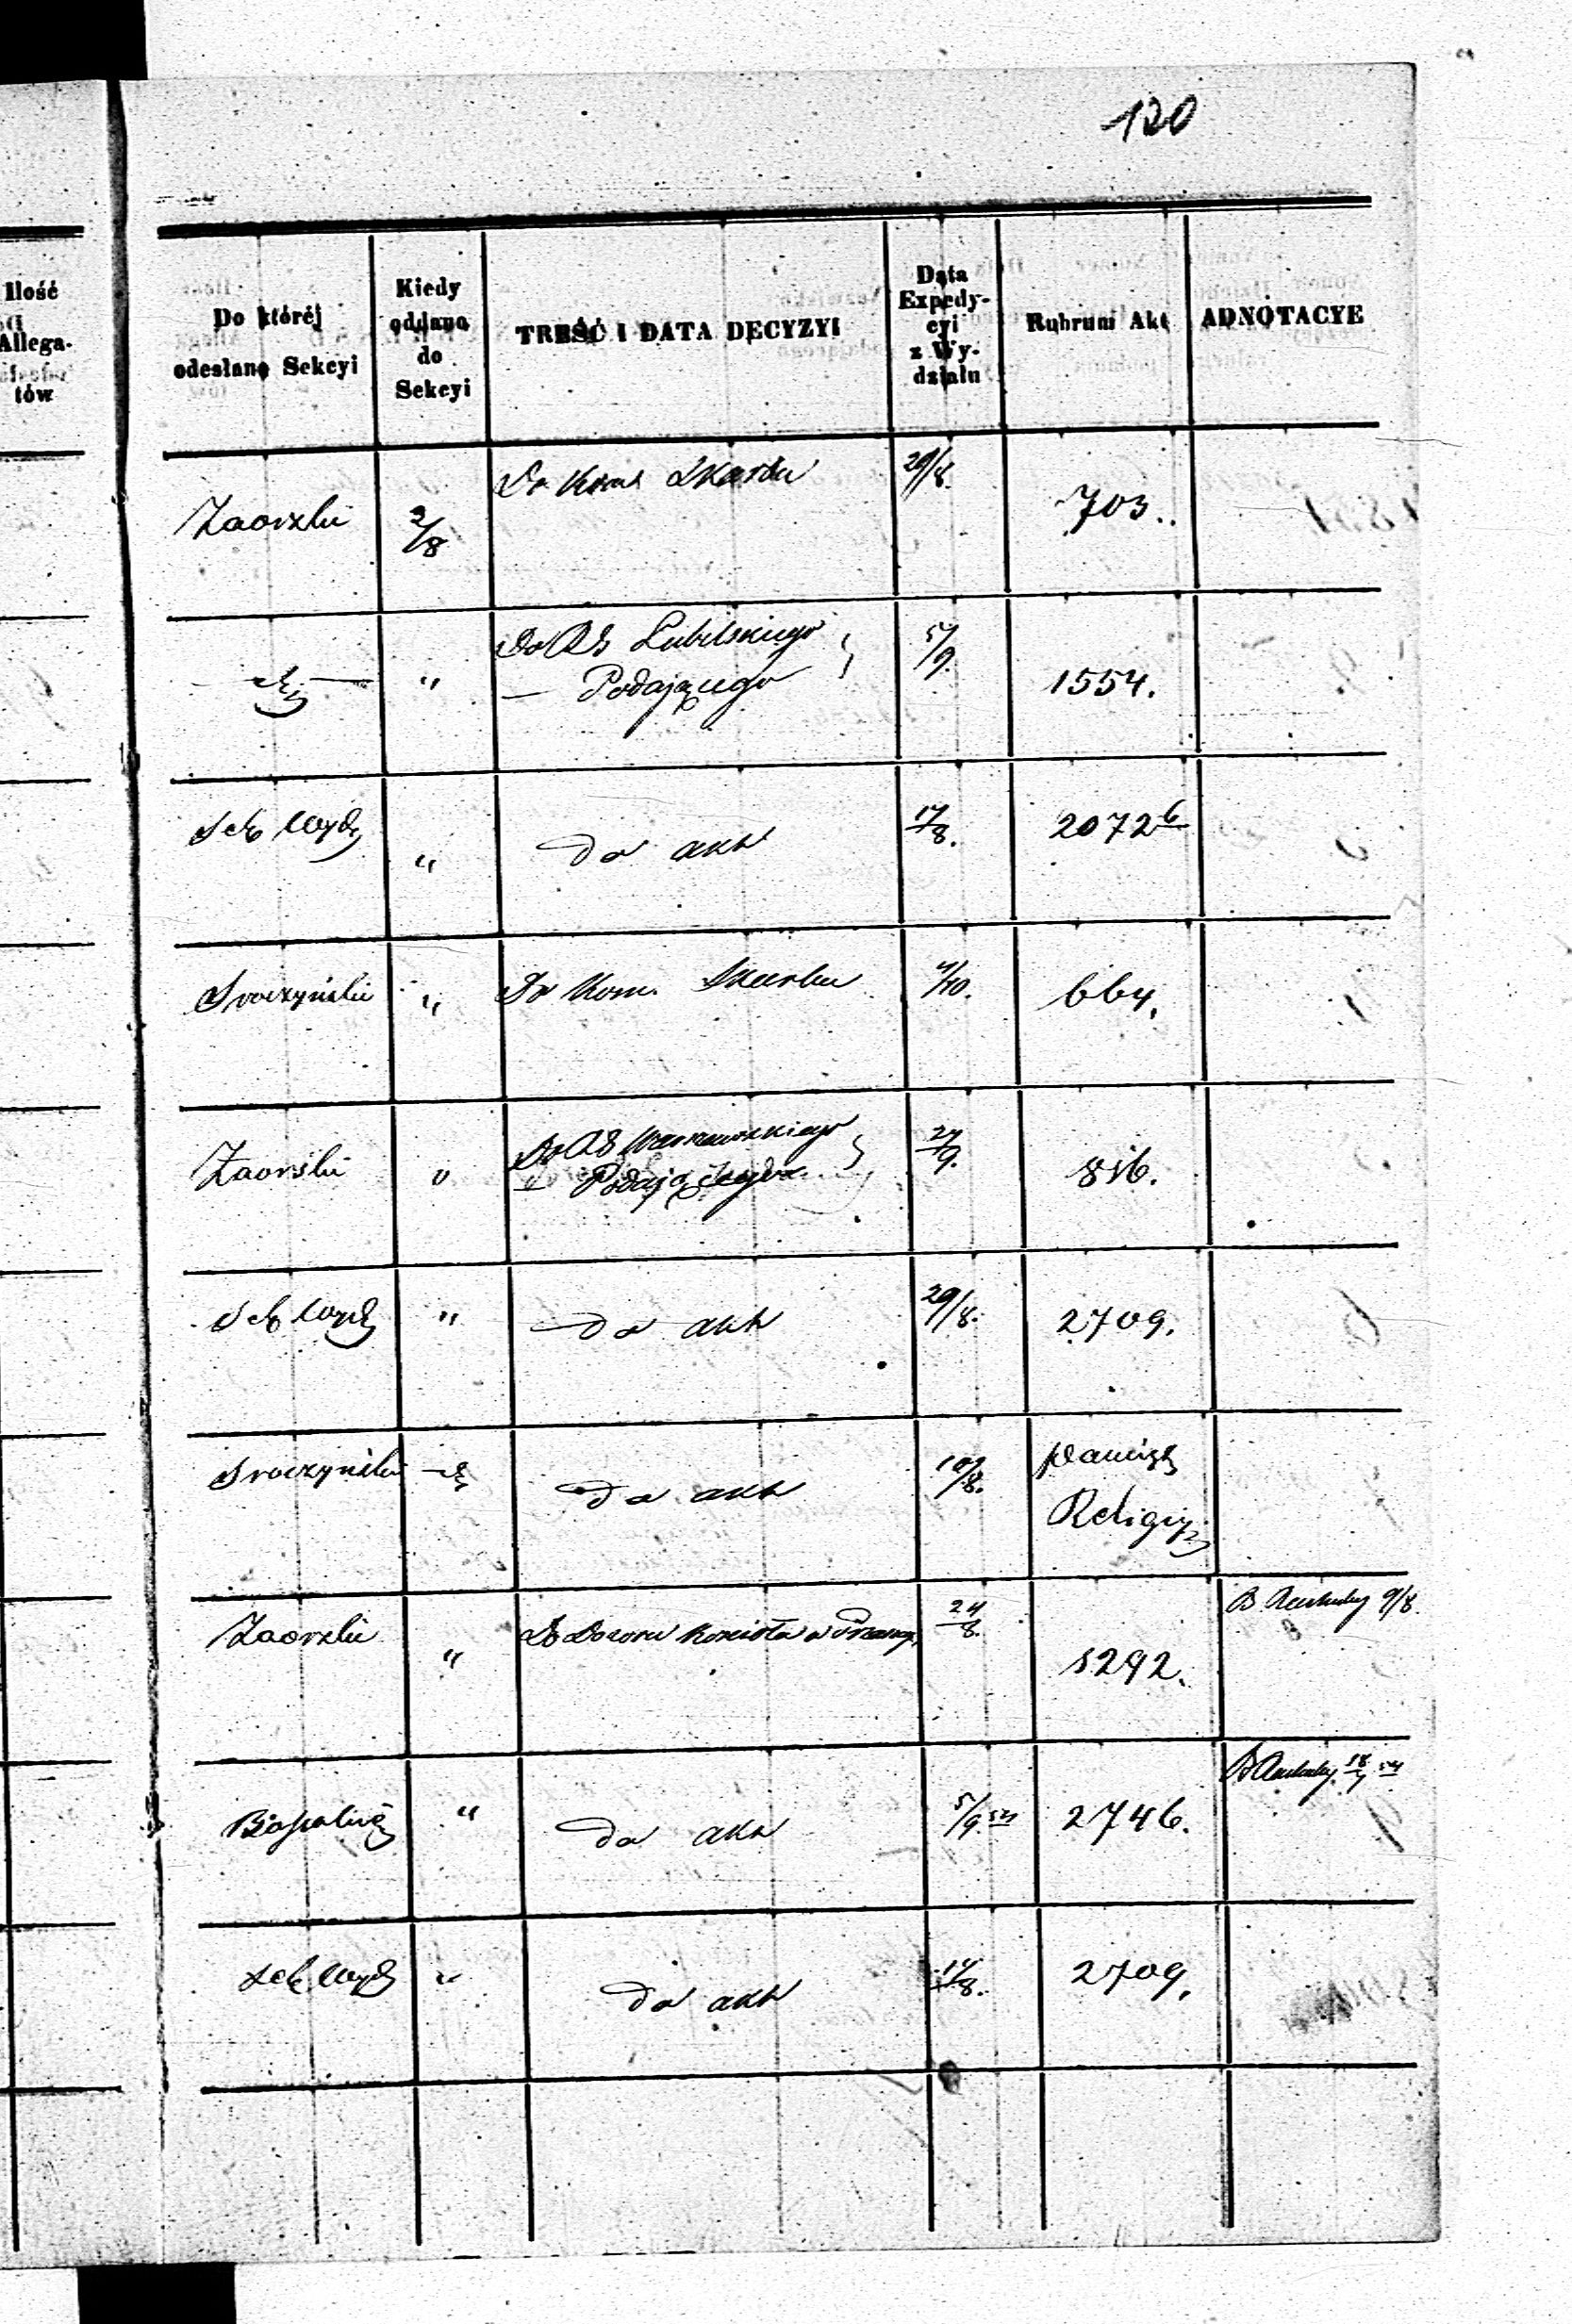 120
Ilość
Allega-
tów
Do któréj
odesłano Sekcyi
Kiedy
oddano
do
Sekcyi
TREŚĆ I DATA DECYZYI
Data
Expedy-
cyi
z Wy-
działu
Rubrum Akt
ADNOTACYE
Zaorski 2/8 Do Kom Skarbu 29/8. 703.
" Do Lubelskiego 5/9.
— Podającego 1554.
Sek Wydz " do akt 17/8. 2072
Sroczyński " Do Kom. Skarbu 4/10. 664.
Zaorski " Do Warszawskiego 27/9.
— Podającego 816.
Sek Wydz " do akt 29/8. 2709.
Sroczyński do akt 10/8.
Religij
Zaorski " Do Dozoru Kościoła w 24/8. 1292. 9/8.
" do akt 5/9 54 2746. 54
Sek Wydz " do akt 14/8. 2709.